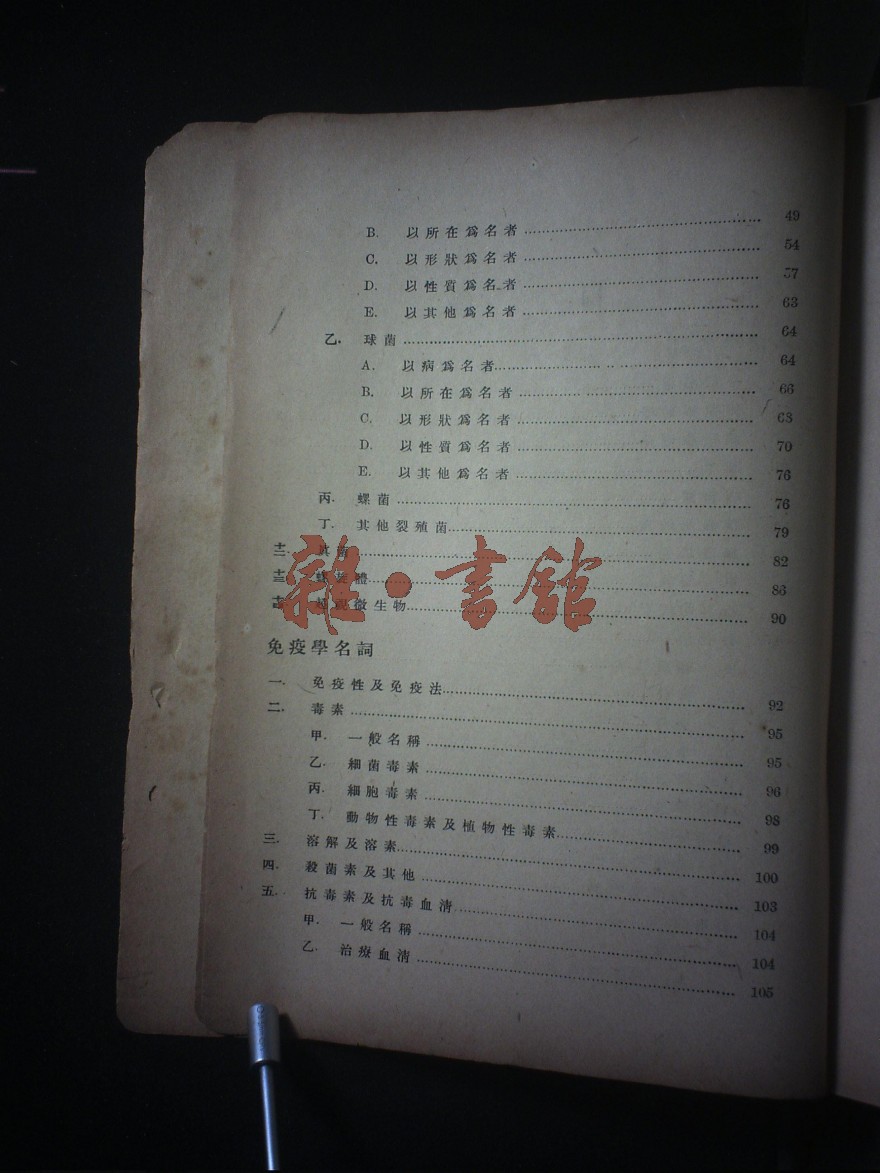 B. 以所在爲名者 49
C. 以形狀爲名者 54
D. 以性質爲名者 57
E. 以其他爲名者 63
乙. 球菌 64
A. 以病爲名者 64
B. 以所在爲名者 66
C. 以形狀爲名者 68
D. 以性質爲名者 70
E. 以其他爲名者 76
丙. 螺菌 76
丁. 其他裂殖菌 79
十二. 真菌 82
十三. 螺旋體 86
微生物 90
雜·書館
免疫學名詞
一. 免疫性及免疫法 92
二. 毒素 95
甲. 一般名稱 95
乙. 細菌毒素 96
丙. 細胞毒素 98
丁. 動物性毒素及植物性毒素 99
三. 溶解及溶素 100
四. 殺菌素及其他 103
五. 抗毒素及抗毒血清 104
甲. 一般名稱 104
乙. 治療血清 105